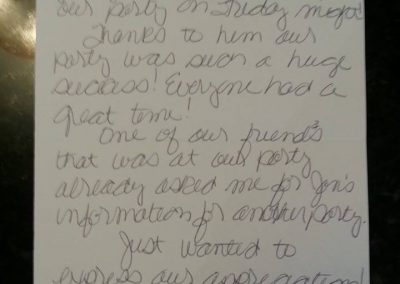 our party on Friday night!
Thanks to him our
party was such a huge
success! Everyone had a
great time!
One of our friends
that was at our party
already asked me for Jon's
information for another party.
Just wanted to
express our appreciation!